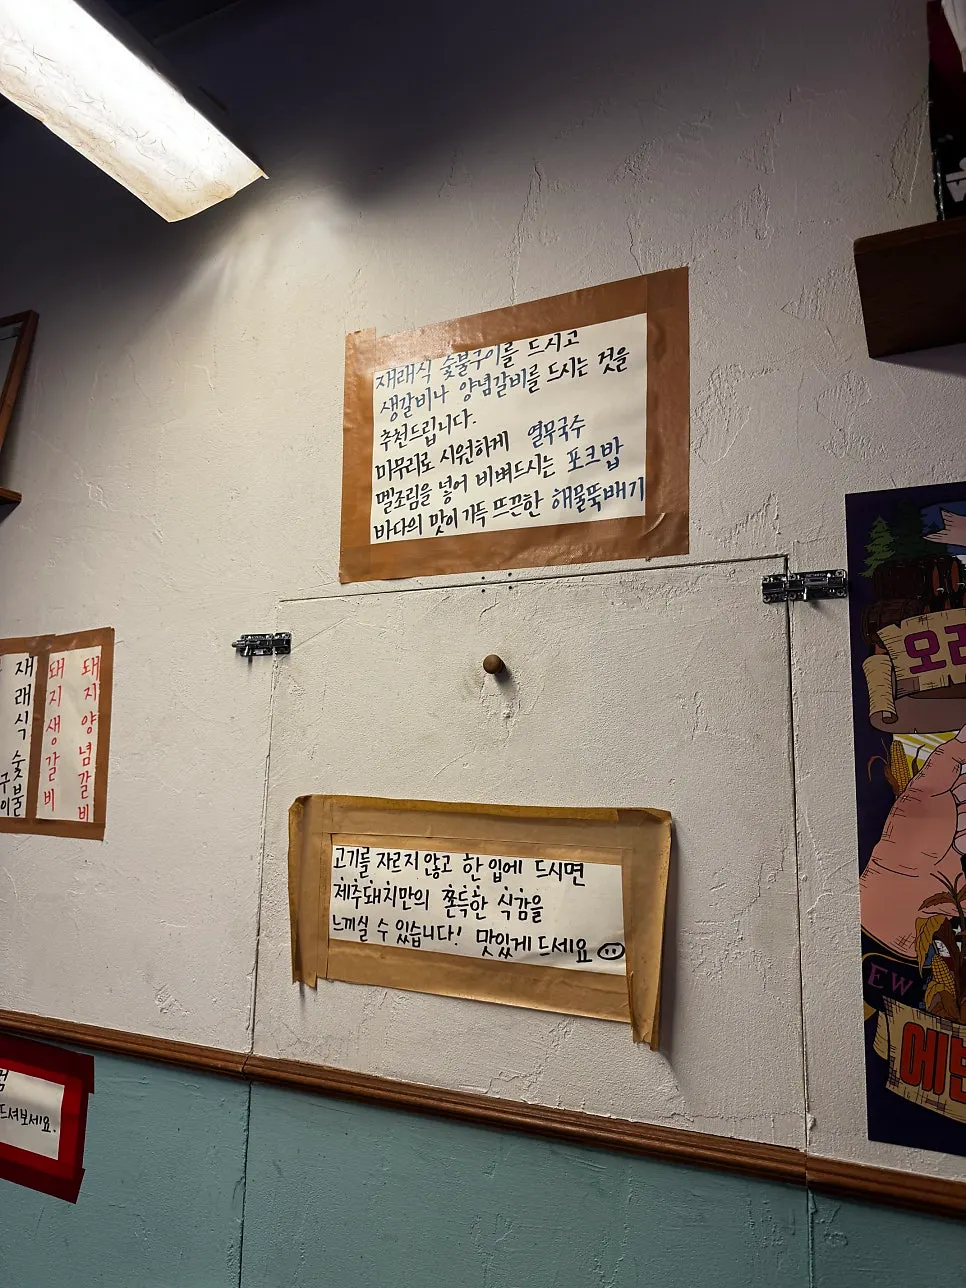 재래식 숯불구이를 드시고
생갈비나 양념갈비를 드시는 것을
추천드립니다.
마무리로 시원하게 열무국수
멜조림을 넣어 비벼드시는 포크밥
바다의 맛이 가득 뜨끈한 해물뚝배기
재래식 숯불구이
돼지생갈비
돼지양념갈비
고기를 자르지 않고 한 입에 드시면
제주돼지만의 쫀득한 식감을
느끼실 수 있습니다! 맛있게 드세요
드셔보세요.
EW